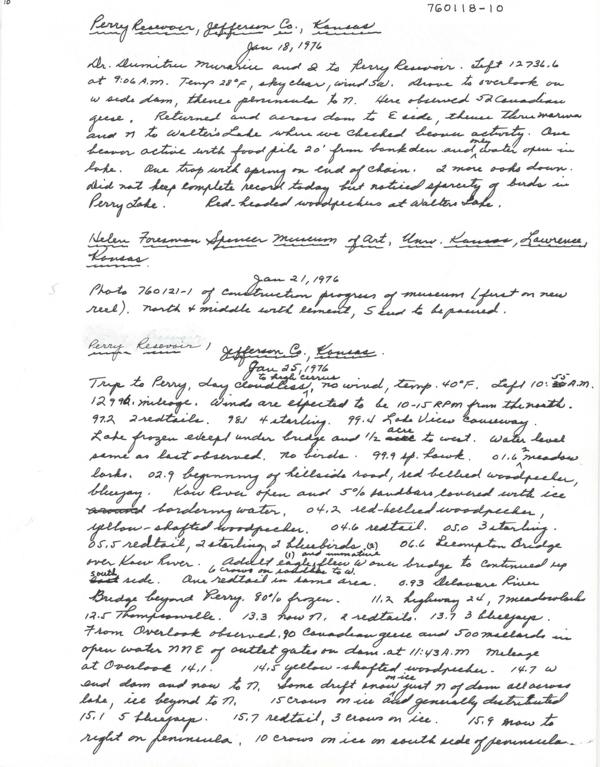 10
760118-10
Perry Resevoir, Jefferson Co., Kansas
Jan 18, 1976
Dr. Dumitru Murariu and I to Perry Resevoir. Left 12736.6
at 9:06 A.M. Temp 28°F, sky clear, wind 5w. Drove to overlook on
w side dam, thence peninsula to N. Here observed 52 Canadian
geese. Returned and across dam to E side, thence thru marina
and N to Walters Lake where we checked beaver activity. One
beaver active with food pile 20' from bank den and only water open in
lake. One trap with spring on end of chain. 2 more oaks down.
Did not keep complete record today but noticed sparcity of birds in
Perry Lake. Red-headed woodpeckers at Walters Lake.
Helen Foresman Spencer Museum of Art, Univ. Kansas, Lawrence,
Kansas.
Jan 21, 1976
Photo 760121-1 of construction progress of museum (first on new
reel). North & middle with cement, S end to be poured.
Perry Resevoir, Jefferson Co., Kansas.
Jan 25, 1976
Trip to Perry, day cloudless to high cirrus, no wind, temp. 40°F. Left 10:55 A.M.
mileage. Winds are expected to be 10-15 RPM from the north.
97.2 2 redtails. 98.1 4 starling. 99.4 Lake View Causeway.
Lake frozen except under bridge and 1/2 acre to west. Water level
same as last observed. No birds. 99.9 sp. hawk. 01.6 2 meadow
larks. 02.9 beginning of hillside road, red bellied woodpecker,
bluejay. Kaw River open and 5% sandbars covered with ice
bordering water. 04.2 red-bellied woodpecker,
yellow-shafted woodpecker. 04.6 redtail. 05.0 3 starling.
05.5 redtail, 2 starling, 2 bluebirds. 06.6 Lecompton Bridge
over Kaw River. Adult (1) and immature (2) eagles flew W over bridge to continued up
south side. 6 crows on sandbar to W. One redtail in same area. 0.93 Delaware River
Bridge beyond Perry. 80% frozen. 11.2 highway 24, 7 meadowlarks
12.5 Thompsonville. 13.3 now N. 2 redtails. 13.7 3 bluejays.
From Overlook observed 90 Canadian geese and 500 mallards in
open water NNE of outlet gates on dam at 11:43 A.M. Mileage
at Overlook 14.1. 14.5 yellow-shafted woodpecker. 14.7 W
end dam and now to N. Some drift snow on ice just N of dam all across
lake, ice beyond to N. 15 crows on ice and generally distributed
15.1 5 bluejays. 15.7 redtail, 3 crows on ice. 15.9 now to
right on peninsula, 10 crows on ice on south side of peninsula